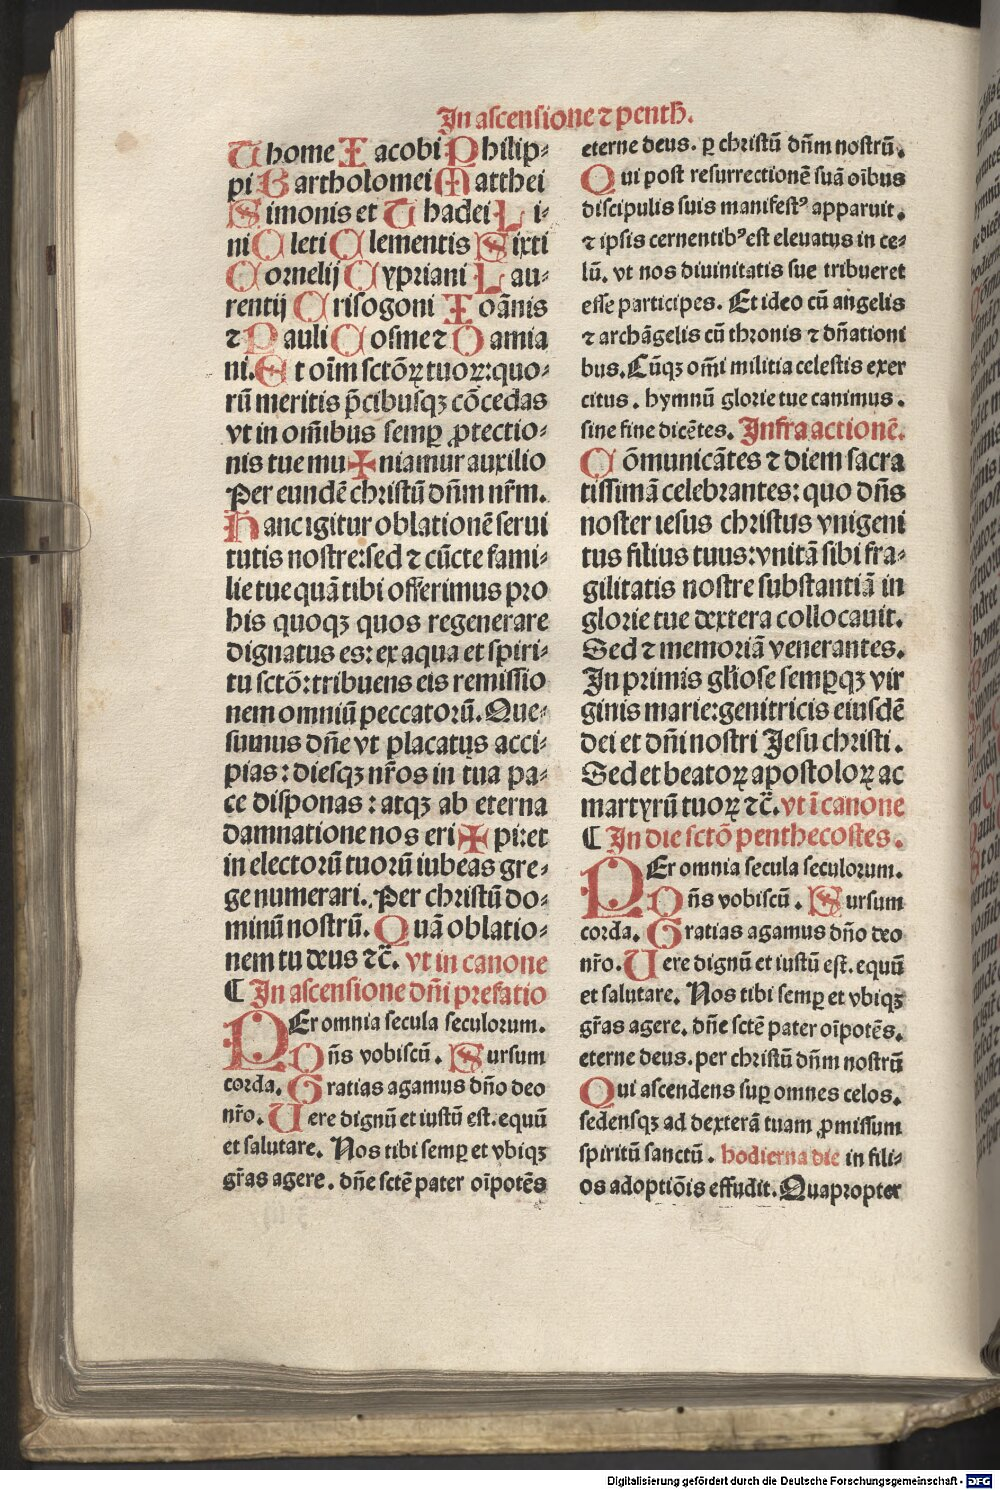 In ascensione ⁊ penth.
Thome Iacobi Philip-
pi Bartholomei Matthei
Simonis et Thadei Li-
ni Cleti Clementis Sixti
Cornelij Cypriani Lau-
rentij Crisogoni Ioānis
⁊ Pauli Cosme ⁊ Damia
ni. Et oīm sctōꝝ tuoꝝ: quo-
rū meritis p̄cibusqꝫ cōcedas
vt in om̄ibus semꝑ ꝓtectio-
nis tue mu✠niamur auxilio
Per eundē christū dn̄m nr̄m.
Hanc igitur oblationē serui
tutis nostre: sed ⁊ cūcte fami-
lie tue quā tibi offerimus pro
his quoqꝫ quos regenerare
dignatus es: ex aqua et spiri-
tu sctō: tribuens eis remissio
nem omniū peccatorū. Que-
sumus dn̄e vt placatus acci-
pias: diesqꝫ nr̄os in tua pa-
ce disponas: atqꝫ ab eterna
damnatione nos eri✠pi: et
in electorū tuorū iubeas gre-
ge numerari. Per christū do-
minū nostrū. Quā oblatio-
nem tu deus ⁊c̄. vt in canone
¶ In ascensione dn̄i prefatio
PEr omnia secula seculorum.
Dn̄s vobiscū. Sursum
corda. Gratias agamus dn̄o deo
nr̄o. Uere dignū et iustū est. equū
et salutare. Nos tibi semꝑ et vbiqꝫ
gr̄as agere. dn̄e sctē pater oīpotēs
eterne deus. ꝑ christū dn̄m nostrū.
Qui post resurrectionē suā oībus
discipulis suis manifestꝰ apparuit.
⁊ ipsis cernentibꝰ est eleuatus in ce-
lū. vt nos diuinitatis sue tribueret
esse participes. Et ideo cū angelis
⁊ archāgelis cū thronis ⁊ dn̄ationi
bus. Cūqꝫ om̄i militia celestis exer
citus. hymnū glorie tue canimus.
sine fine dicētes. Infra actionē.
Cōmunicātes ⁊ diem sacra
tissimā celebrantes: quo dn̄s
noster iesus christus vnigeni
tus filius tuus: vnitā sibi fra-
gilitatis nostre substantiā in
glorie tue dextera collocauit.
Sed ⁊ memoriā venerantes.
In primis gl̄iose semꝑqꝫ vir
ginis marie: genitricis eiusdē
dei et dn̄i nostri Jesu christi.
Sed et beatoꝝ apostoloꝝ ac
martyrū tuoꝝ ⁊c̄. vt ī canone
¶ In die sctō penthecostes.
PEr omnia secula seculorum.
Dn̄s vobiscū. Sursum
corda. Gratias agamus dn̄o deo
nr̄o. Uere dignū et iustū est. equū
et salutare. Nos tibi semꝑ et vbiqꝫ
gr̄as agere. dn̄e sctē pater oīpotēs.
eterne deus. per christū dn̄m nostrū
Qui ascendens suꝑ omnes celos.
sedensqꝫ ad dexterā tuam ꝓmissum
spiritū sanctū. hodierna die in fili-
os adoptiōis effudit. Quapropter
Digitalisierung gefördert durch die Deutsche Forschungsgemeinschaft - DFG